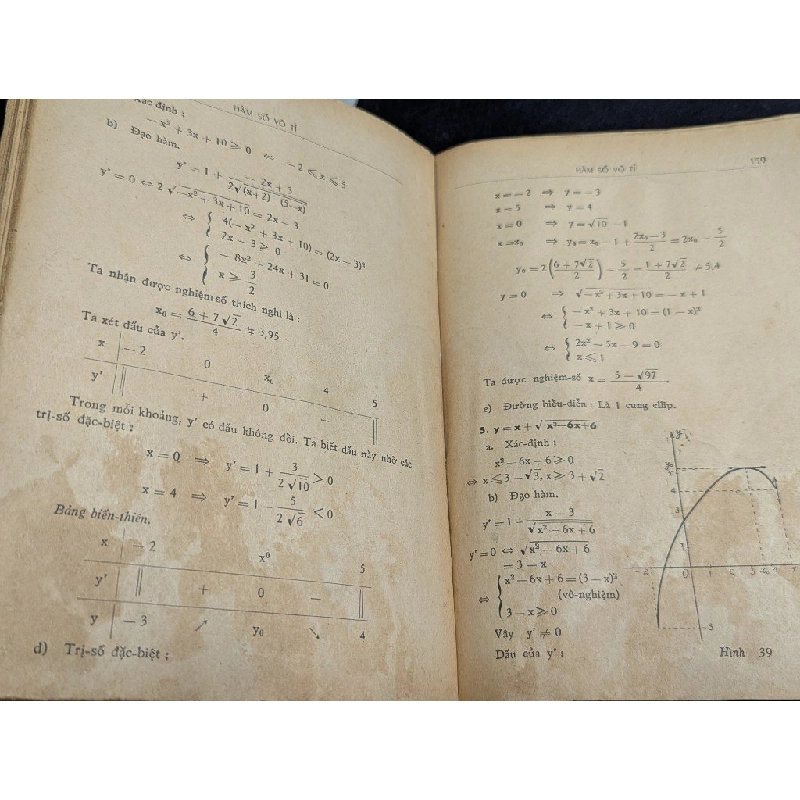 HÀM SỐ VÔ TỈ
Xác định :
−x² + 3x + 10 ⩾ 0 ⇔ −2 ⩽ x ⩽ 5
b) Đạo hàm.
y' = 1 + −2x + 3 / 2√(x+2) (5−x)
y' = 0 ⇔ 2√−x² + 3x + 10 = 2x − 3
⇔ { 4(−x² + 3x + 10) = (2x − 3)²
2x − 3 ⩾ 0
⇔ { − 8x² − 24x + 31 = 0
x ⩾ 3/2
Ta nhận được nghiệm số thích nghi là :
x₀ = 6 + 7√2 / 4 ≠ 3,95
Ta xét dấu của y'.
x −2 0 x₀ 4 5
y' || + 0 − ||
Trong mỗi khoảng, y' có dấu không đổi. Ta biết dấu này nhờ các
trị-số đặc-biệt :
x = 0 ⇒ y' = 1 + 3 / 2√10 > 0
x = 4 ⇒ y' = 1 − 5 / 2√6 < 0
Bảng biến-thiên.
x −2 x⁰ 5
y' || + 0 − ||
y −3 ↗ y₀ ↘ 4
d) Trị-số đặc-biệt :
HÀM SỐ VÔ TỈ 159
x = −2 ⇒ y = −3
x = 5 ⇒ y = 4
x = 0 ⇒ y = √10 − 1
x = x₀ ⇒ y₀ = x₀ − 1 + 2x₀ − 3 / 2 = 2x₀ − 5/2
y₀ = 2(6 + 7√2 / 2) − 5/2 = 1 + 7√2 / 2 ≠ 5,4
y = 0 ⇒ √−x² + 3x + 10 = −x + 1
⇔ { −x² + 3x + 10 = (1 − x)²
−x + 1 ⩾ 0
⇔ { 2x² − 5x − 9 = 0
x ⩽ 1
Ta được nghiệm-số x = 5 − √97 / 4
e) Đường biểu-diễn : Là 1 cung elip.
5. y = x + √x² − 6x + 6
a. Xác-định :
x² − 6x − 6 ⩾ 0
⇔ x ⩽ 3 − √3, x ⩾ 3 + √2
b) Đạo hàm.
y' = 1 + x − 3 / √x² − 6x + 6
y' = 0 ⇔ √x² − 6x + 6
= 3 − x
⇔ { x² − 6x + 6 = (3 − x)²
(vô-nghiệm)
3 − x ⩾ 0
Vậy y' ≠ 0
Dấu của y' :
−2 0 1
−3
Hình 39